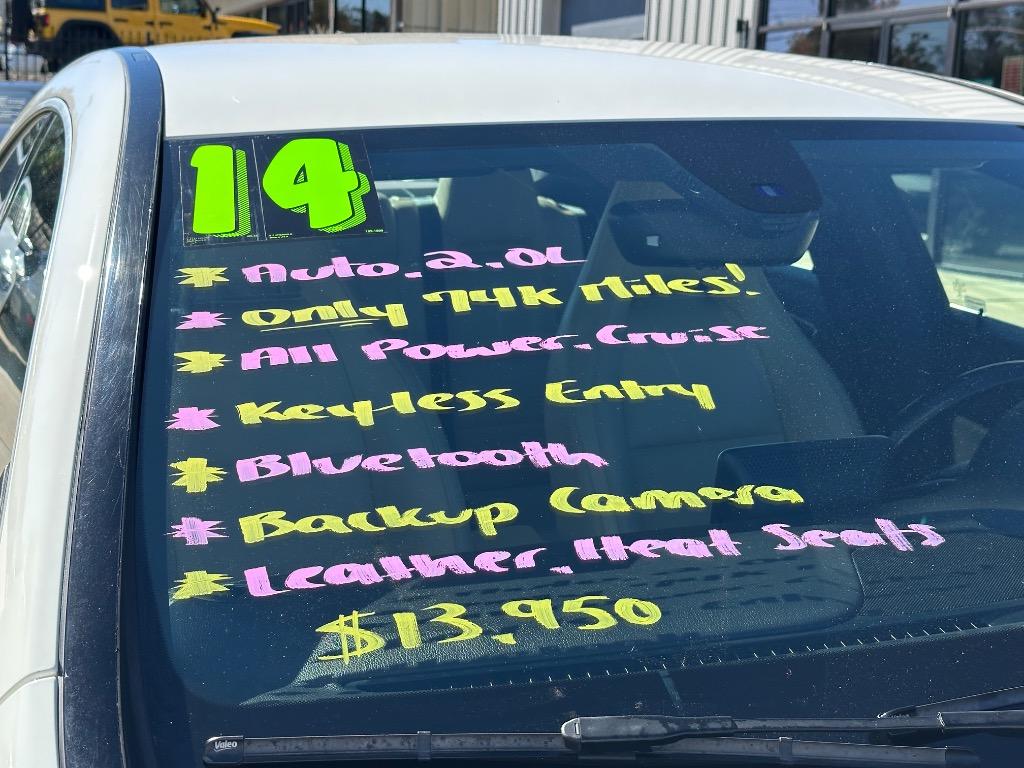 14
* Auto. 2.0L
* Only 74K Miles!
* All Power. Cruise
* Keyless Entry
* Bluetooth
* Backup Camera
* Leather. Heat Seats
$13,950
Valeo